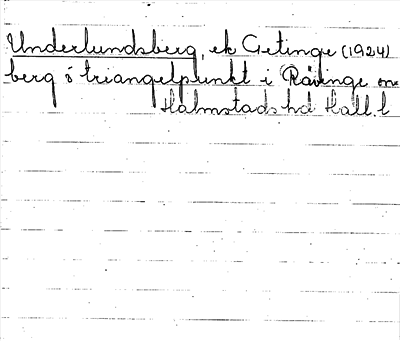 Underlundsberg, ek Getinge (1924)
berg ö triangelpunkt i Rävinge sn
Halmstads hd Hall. l